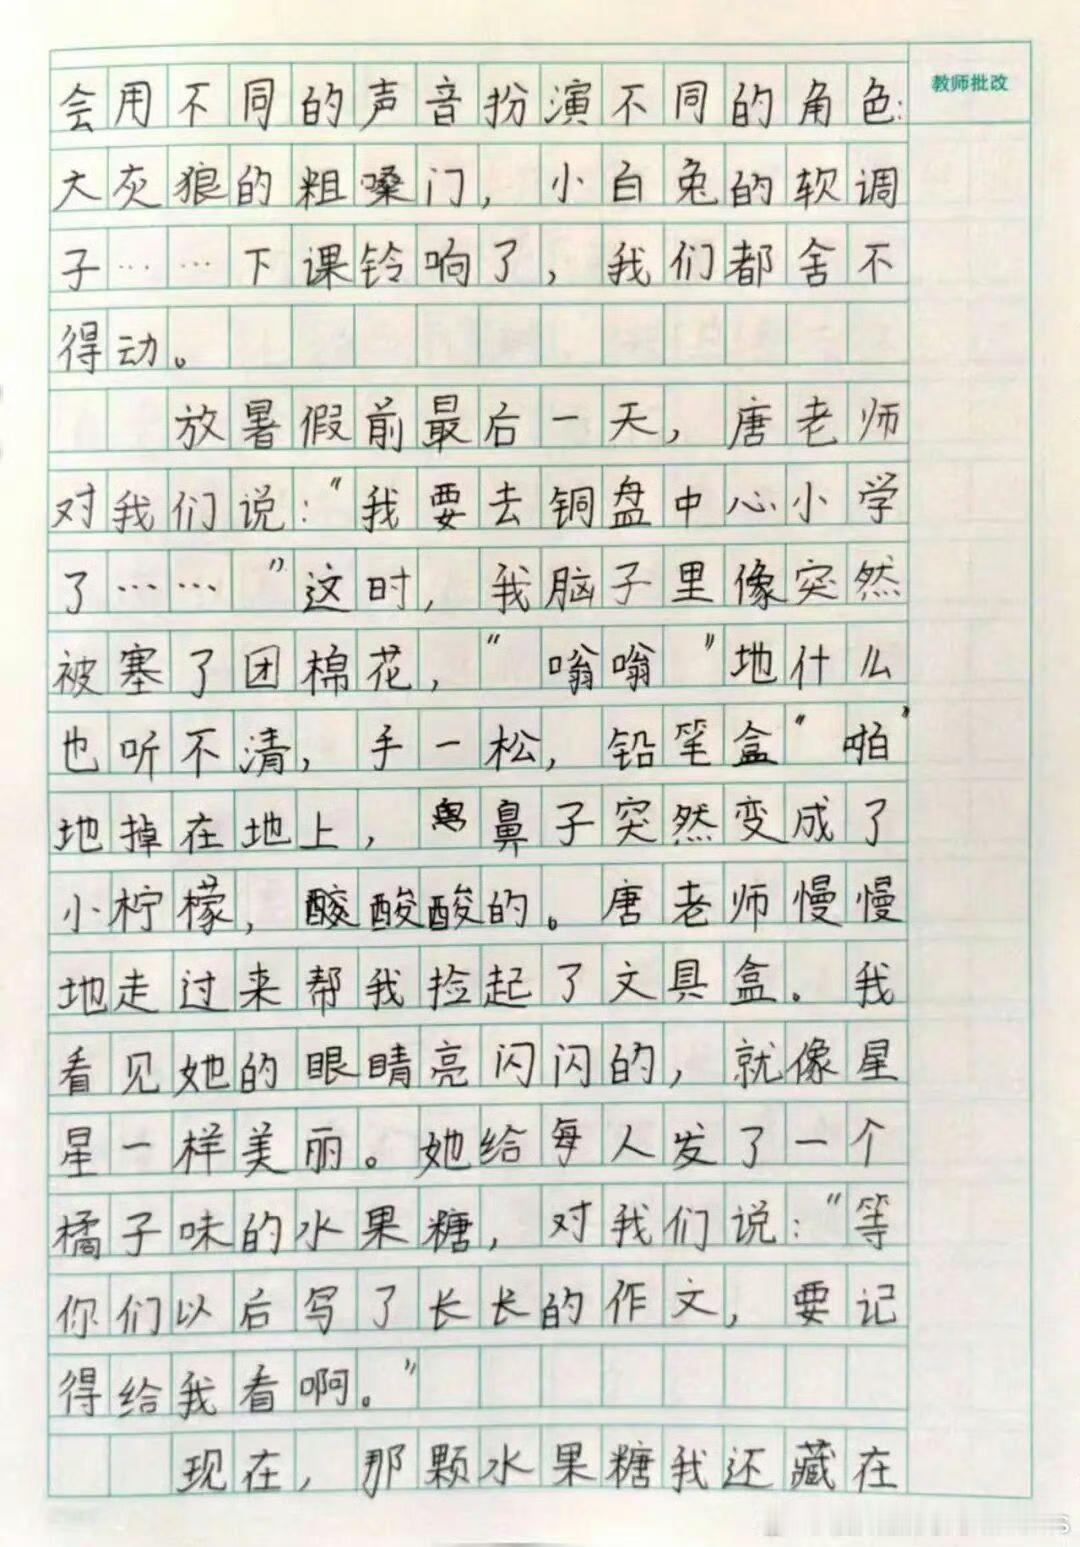 教师批改
会用不同的声音扮演不同的角色:
大灰狼的粗嗓门，小白兔的软调
子……下课铃响了，我们都舍不
得动。
放暑假前最后一天，唐老师
对我们说："我要去铜盘中心小学
了……"这时，我脑子里像突然
被塞了团棉花，"嗡嗡"地什么
也听不清，手一松，铅笔盒"啪"
地掉在地上，鼻子突然变成了
小柠檬，酸酸酸的。唐老师慢慢
地走过来帮我捡起了文具盒。我
看见她的眼睛亮闪闪的，就像星
星一样美丽。她给每人发了一个
橘子味的水果糖，对我们说："等
你们以后写了长长的作文，要记
得给我看啊。"
现在，那颗水果糖我还藏在